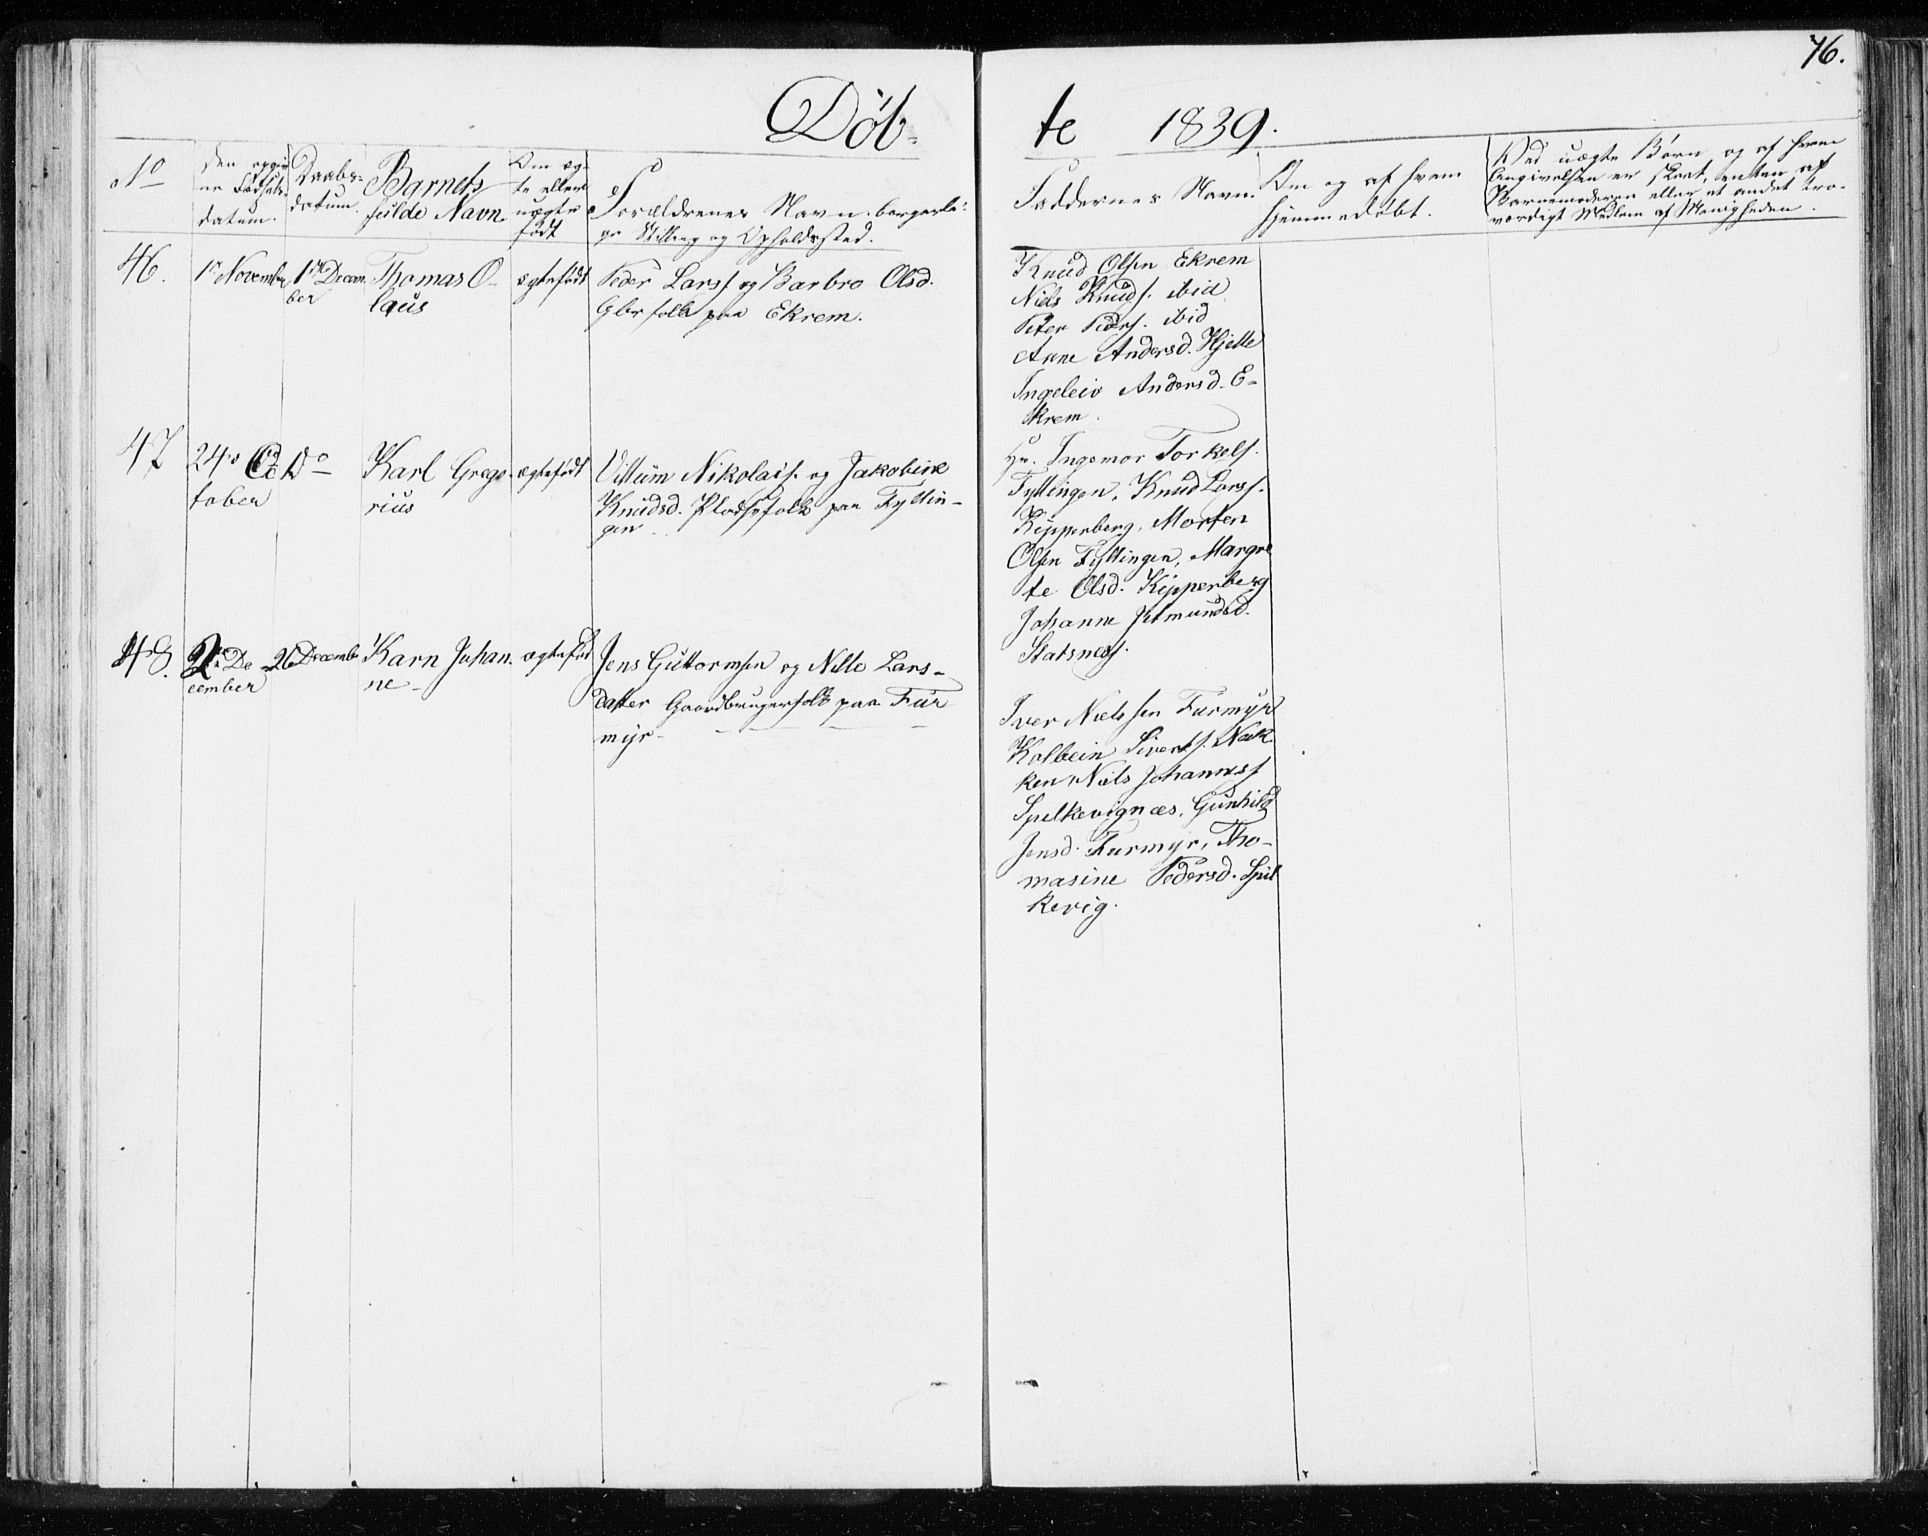 76.
Døb-
te 1839.
No
Den opgiv
ne Fødsels-
datum.
Daabs-
datum.
Barnets
fulde Navn
Om æg-
te eller
uægte
født
Forældrenes Navn. borgerli-
ge Stilling og Opholdssted.
Faddernes Navn.
Om og af hvem
hjemmedøbt.
Ved uægte Børn og af hvem
Angivelsen er skeet, enten af
Barnemoderen eller et andet tro-
værdigt Medlem af Menigheden.
46.
1ste November
1ste Decem
ber
Thomas O-
laus
ægtefødt
Peder Larss. og Barbro Olsd.
Gbrfolk paa Ekrem.
Knud Olsen Ekrem
Niels Knuds. ibid
Peter Peders. ibid
Anne Andersd. Hjelle
Ingeleiv Andersd. E-
krem.
47
24de Oc
tober
Do
Karl Grego-
rius
ægtefødt
Nikolais. og Jakobine
Knudsd. Pladsfolk paa Fyllin-
gen
Ingemor Torkels.
Fyllingen, Knud Larss.
Kipperberg, Morten
Olsen Fyllingen, Margre
te Olsd. Kipperberg
Johanne
48.
2den De
cember
26 Decembr
Karn Johan-
ne
ægtefød
Jens Guttormsen og Nille Lars-
datter Gaardbrugerfolk paa Fur
myr
Iver Nielssen Furmyr
Kolbein Siverts. Nak
ken, Niels Johanness
Spelkevignæs, Gunhild
Jensd. Furmyr, Tho-
masine Pedersd. Spil
kevig.